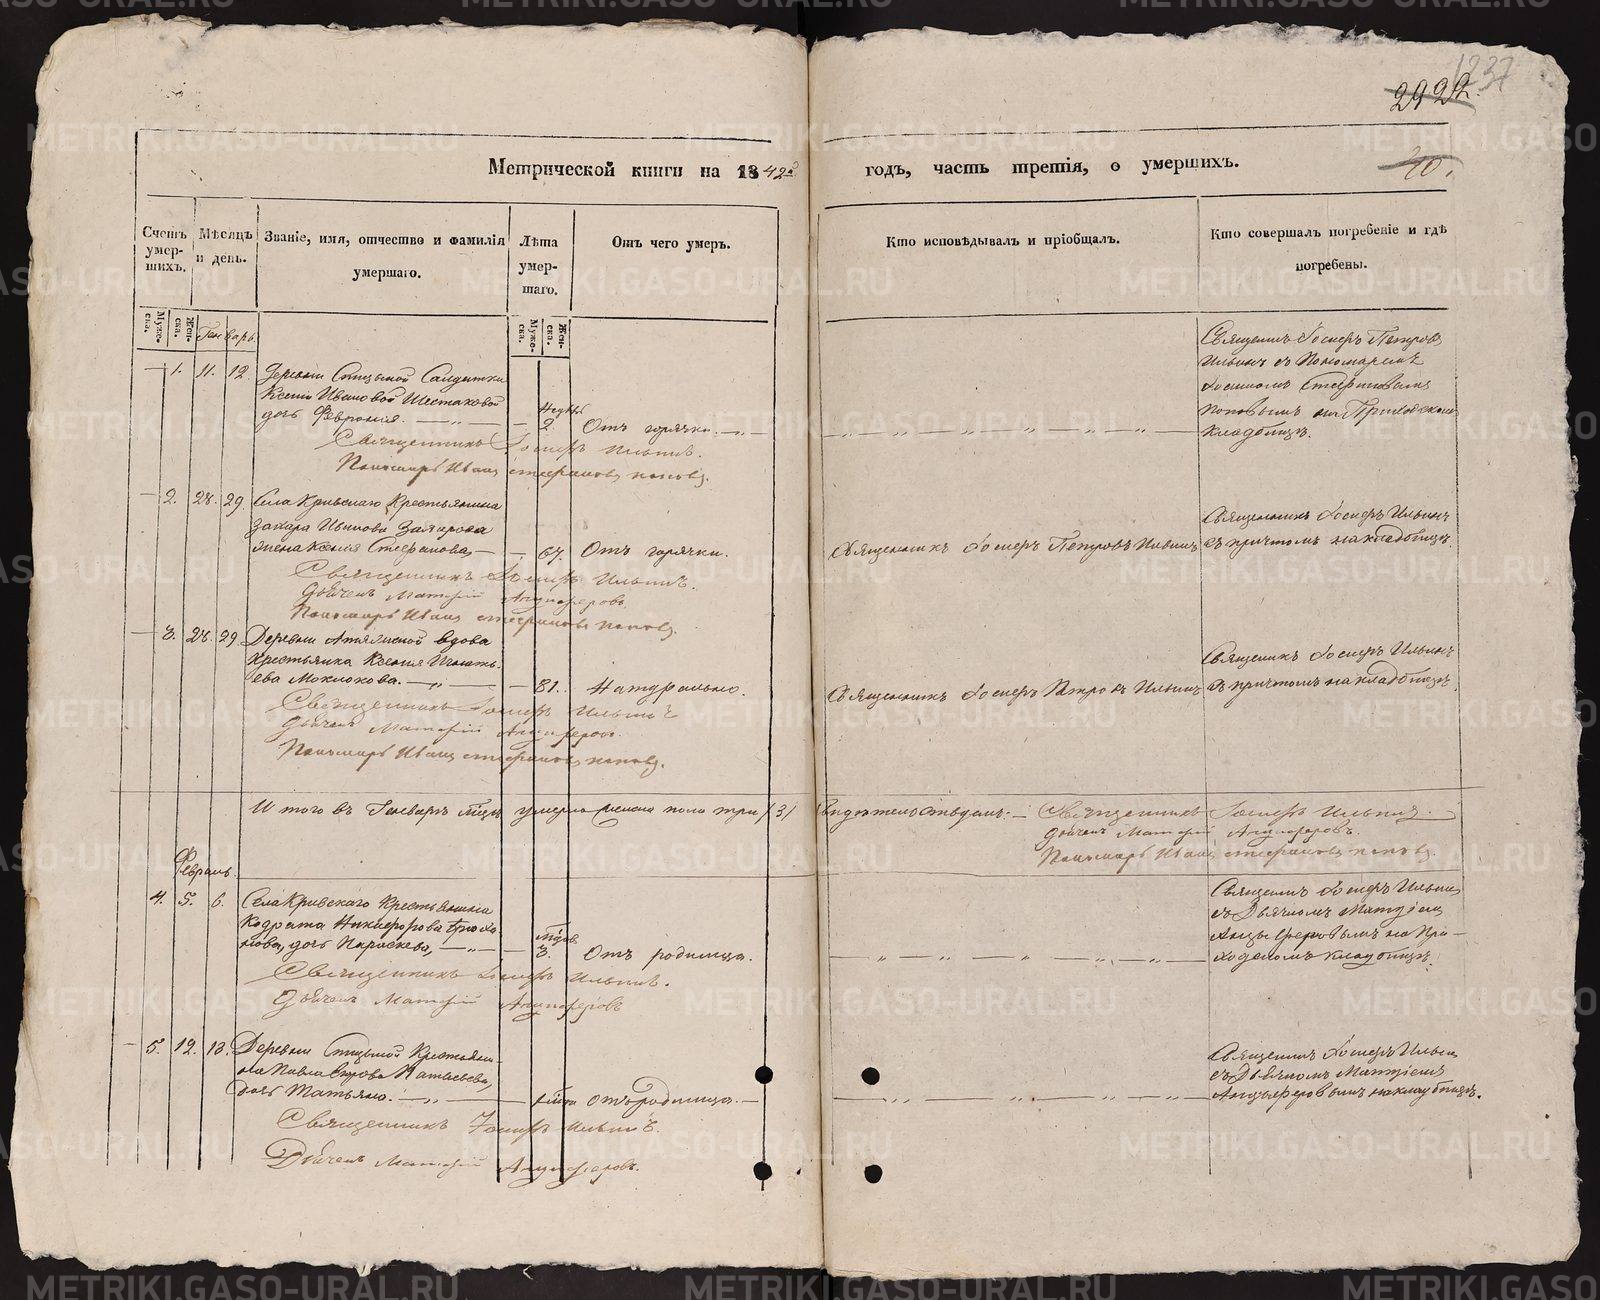 1237
2922.
Метрической книги на 1842й годъ, часть третія, о умершихъ.
40.
Счетъ умер-шихъ.
Мѣсяцъ и день.
Званіе, имя, отчество и фамилія умершаго.
Лѣта умер-шаго.
Отъ чего умеръ.
Кто исповѣдывалъ и пріобщалъ.
Кто совершалъ погребеніе и гдѣ погребены.
Муже-ска.
Жен-ска.
Генварь
Муже-ска.
Жен-ска.
1. 11. 12.
Деревни Солдатки
Ксеніи Ивановой Шестаковой
дочь Февронія.
2
Отъ горячки.
Священникъ Іосифъ Ильинъ.
Пономарь Иванъ Стефановъ Поповъ.
Священникъ Іосифъ Петровъ
Ильинъ съ Пономаремъ
Поповымъ на Приходскомъ
кладбищѣ.
2. 28. 29.
Села Кривскаго Крестьянина
Захара Иванова
жена Ксенія Стефанова,
67
Отъ горячки.
Священникъ Іосифъ Петровъ Ильинъ
Священникъ Іосифъ Ильинъ
съ причтомъ на кладбищѣ.
Священникъ Іосифъ Ильинъ.
Дьячекъ Матфій Анциферовъ.
Пономарь Иванъ Стефановъ Поповъ.
3. 28. 29
Деревни вдова
Крестьянка Ксенія Игнать-
ева Моклокова.
81.
Натурально.
Священникъ Іосифъ Петровъ Ильинъ
Священникъ Іосифъ Ильинъ
съ причтомъ на кладбищѣ.
Священникъ Іосифъ Ильинъ
Дьячекъ Матфій Анциферовъ.
Пономарь Иванъ Стефановъ Поповъ.
И того въ Генварѣ мѣсяцѣ умерло женска пола три /3/
Священникъ Іосифъ Ильинъ.
Дьячекъ Матфій Анциферовъ.
Пономарь Иванъ Стефановъ Поповъ.
Февраль.
4. 5. 6.
Села Кривскаго Крестьянина
Кодрата Никифорова
дочь Параскева,
3.
Отъ родимца.
Священникъ Іосифъ Ильинъ.
Дьячекъ Матфій Анциферовъ
Священникъ Іосифъ Ильинъ
съ Дьячкомъ Матфіемъ
Анциферовымъ на При-
ходскомъ кладбищѣ.
5. 12. 13.
Деревни Крестьяни-
на Павла
дочь Татьяна.
Отъ родимца.
Священникъ Іосифъ Ильинъ.
Дьячекъ Матфій Анциферовъ.
Священникъ Іосифъ Ильинъ
съ Дьячкомъ Матфіемъ
Анциферовымъ на кладбищѣ.
METRIKI.GASO-URAL.RU